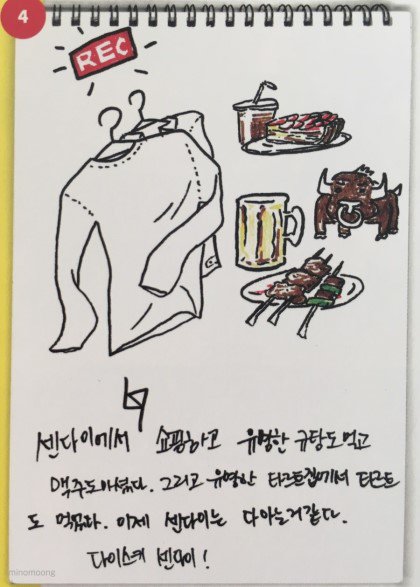 4
REC
센다이에서 쇼핑하고 유명한 규탕도먹고
맥주도마셨다. 그리고 유명한 타르트집에서 타르트
도 먹었다. 이제 센다이는 다아는거같다.
다이스키 센다이!
minomoong